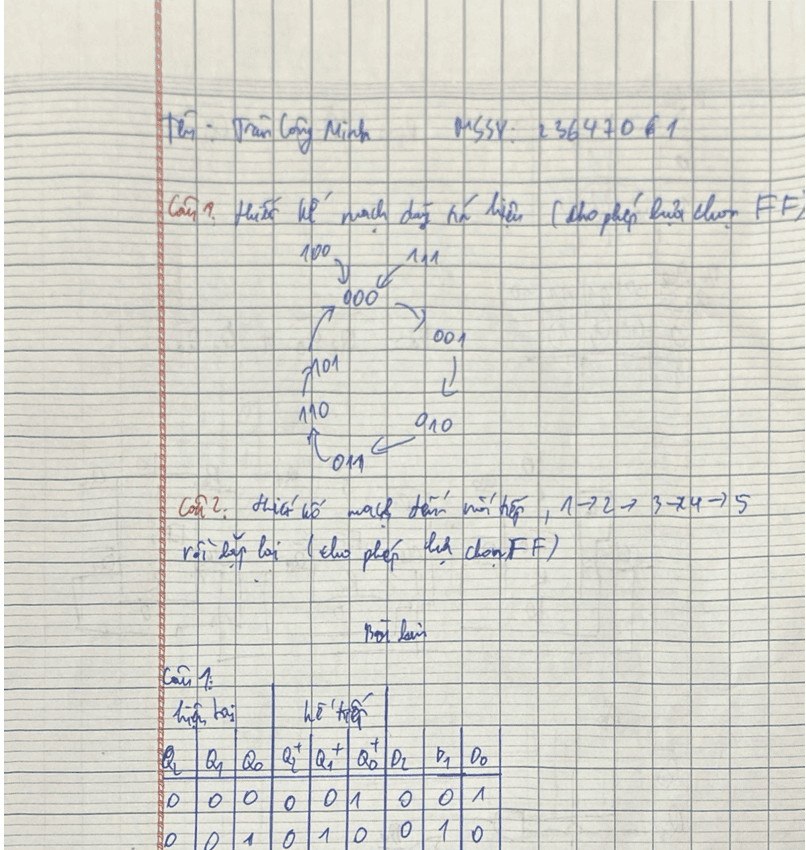 Tên: Trần Công Minh MSSV: 23647061
Câu 1: thiết kế mạch dãy tín hiệu (cho phép lựa chọn FF)
100 111
000
001
101
110 010
011
Câu 2: thiết kế mạch đếm nối tiếp, 1→2→3→4→5
rồi lặp lại (cho phép lựa chọn FF)
Bài làm
Câu 1:
hiện tại kế tiếp
Q2 Q1 Q0 Q2+ Q1+ Q0+ D2 D1 D0
0 0 0 0 0 1 0 0 1
0 0 1 0 1 0 0 1 0